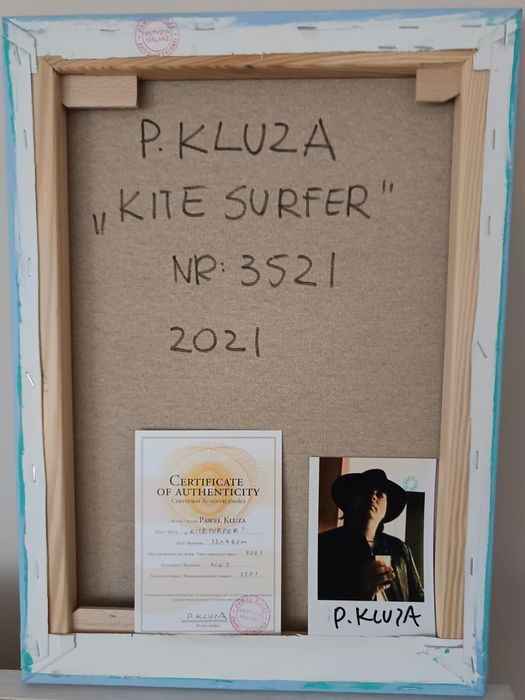 P. KLUZA
„KITE SURFER"
NR: 3521
2021
CERTIFICATE
OF AUTHENTICITY
CERTYFIKAT AUTENTYCZNOŚCI
PAWEŁ KLUZA
„KITE SURFER"
2021
OLEJ
3521
P. KLUZA
P. KLUZA